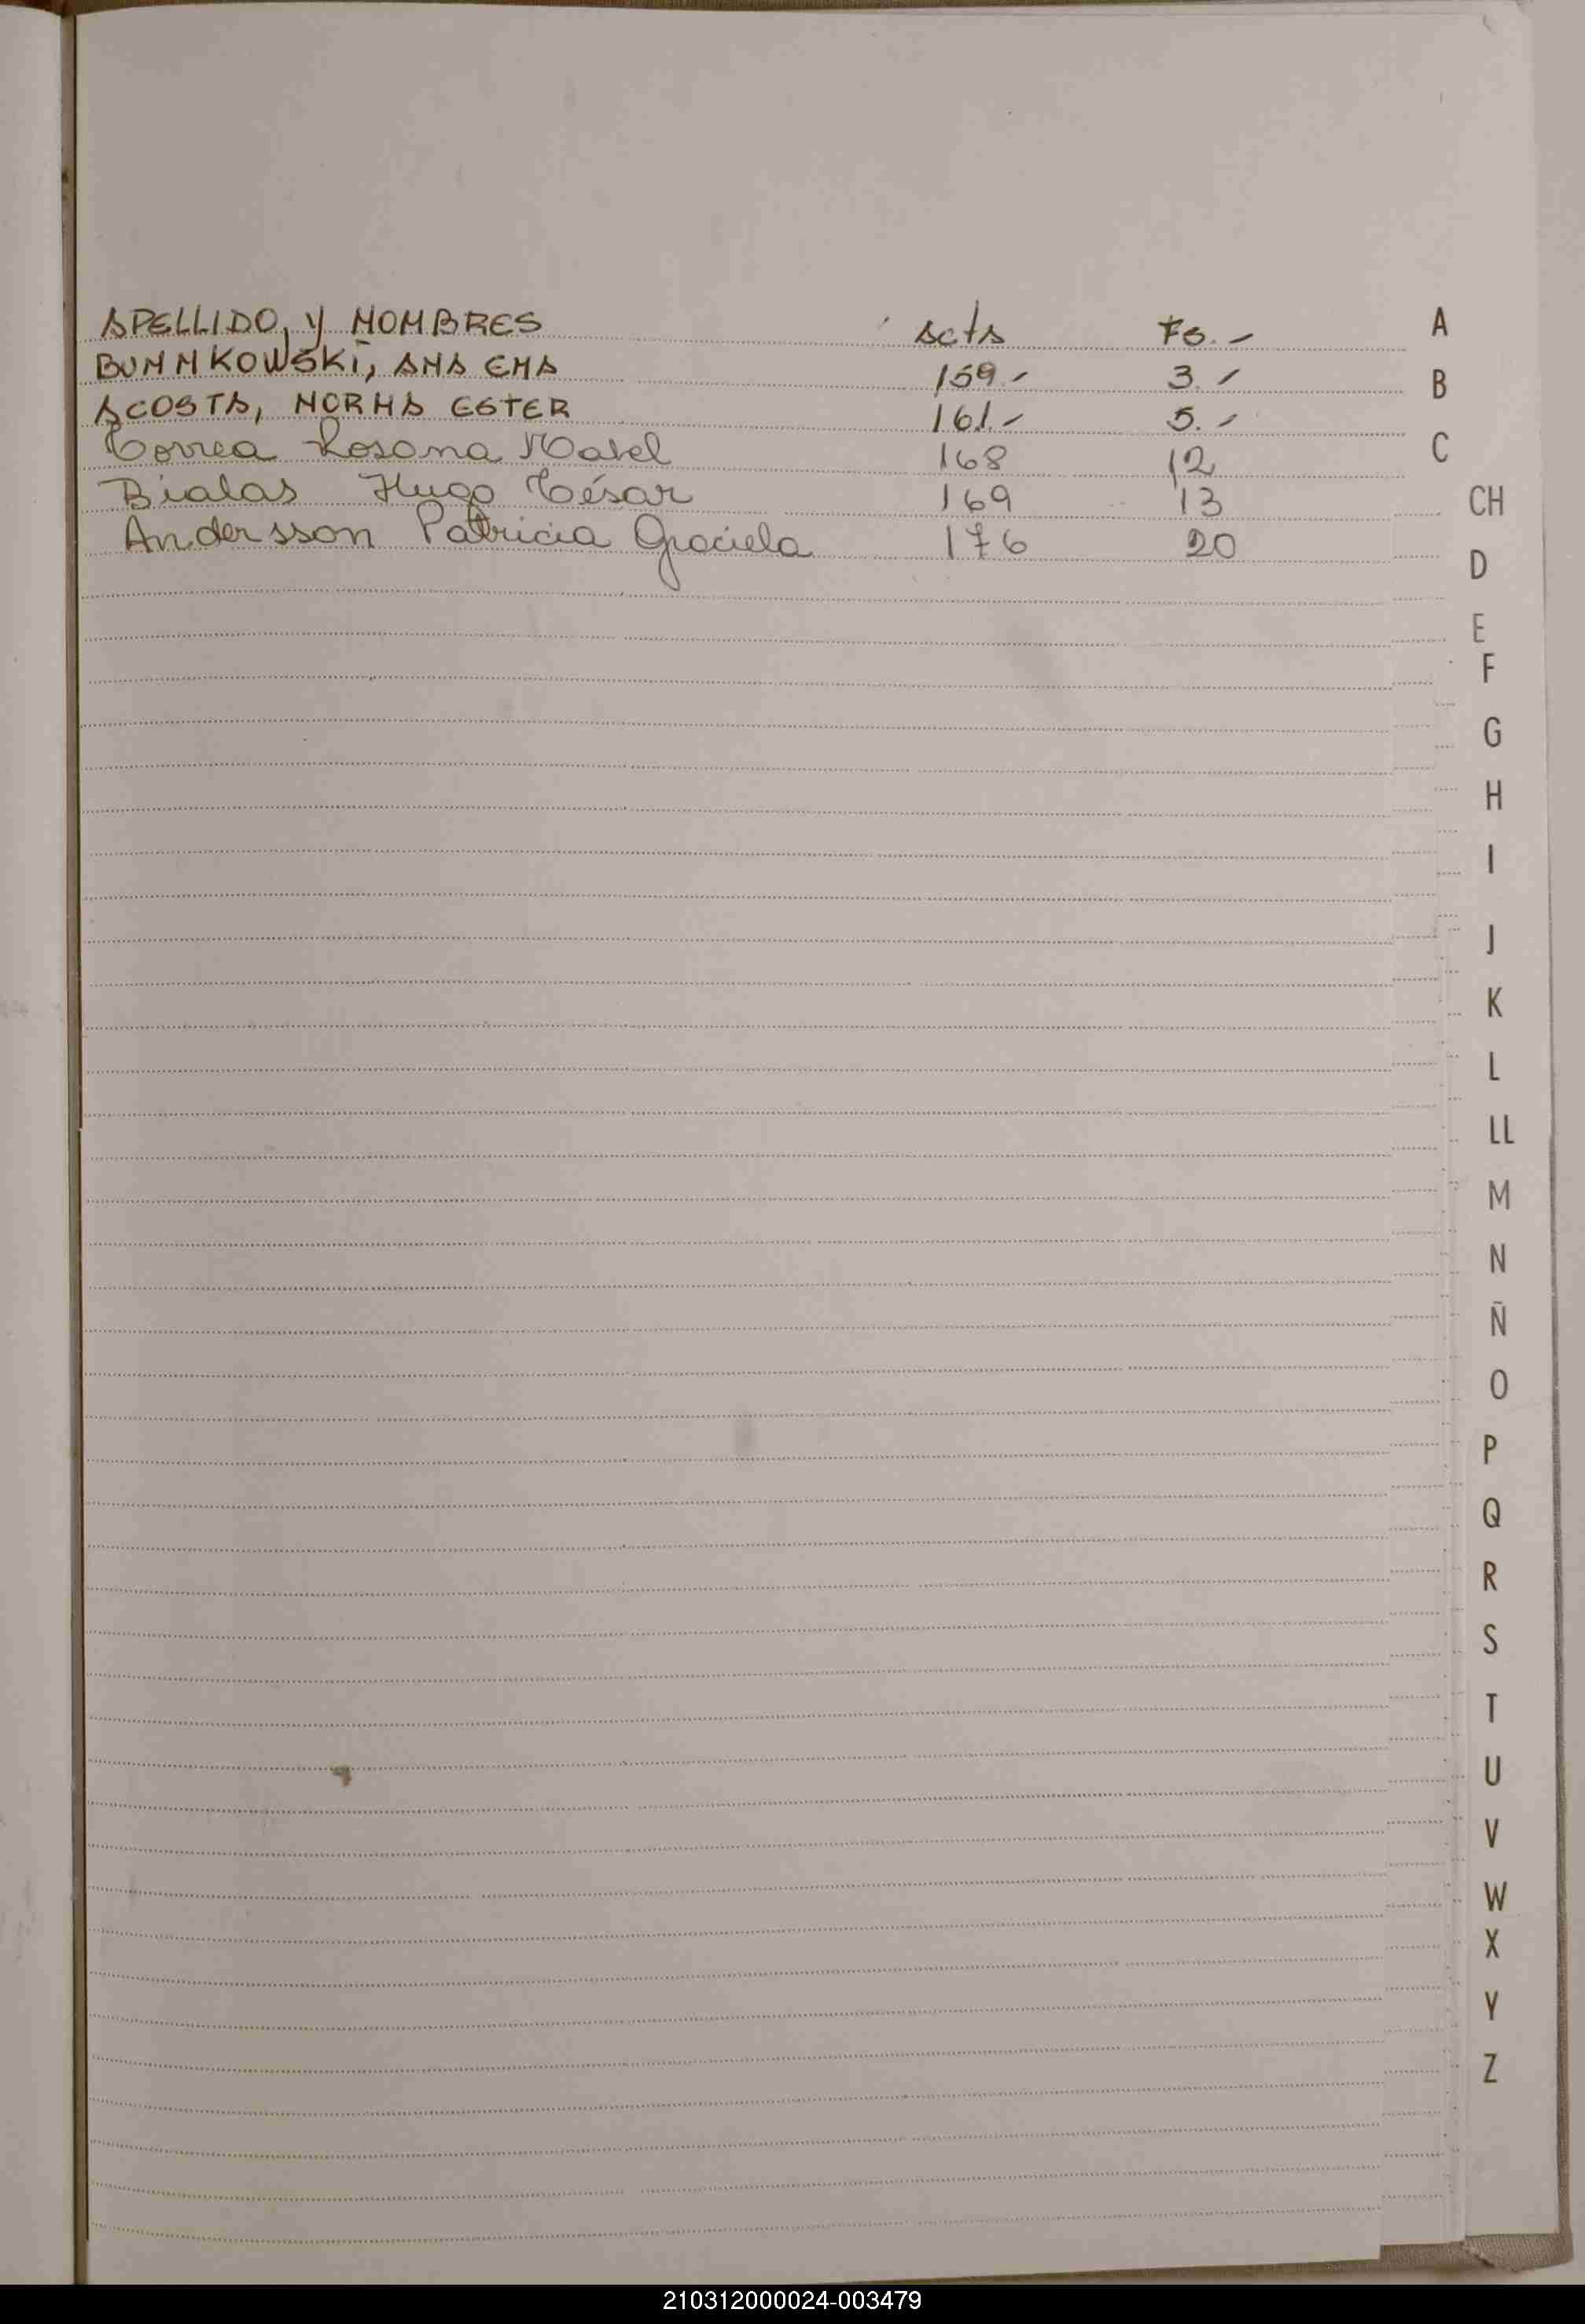 APELLIDO, Y NOMBRES Acta Fo.-
BUNNKOWSKI, ANA EMA 159.- 3.-
ACOSTA, NORMA ESTER 161.- 5.-
Correa Rosana Mabel 168 12
Bialas Hugo César 169 13
Andersson Patricia Graciela 176 20
A
B
C
CH
D
E
F
G
H
I
J
K
L
LL
M
N
Ñ
O
P
Q
R
S
T
U
V
W
X
Y
Z
210312000024-003479